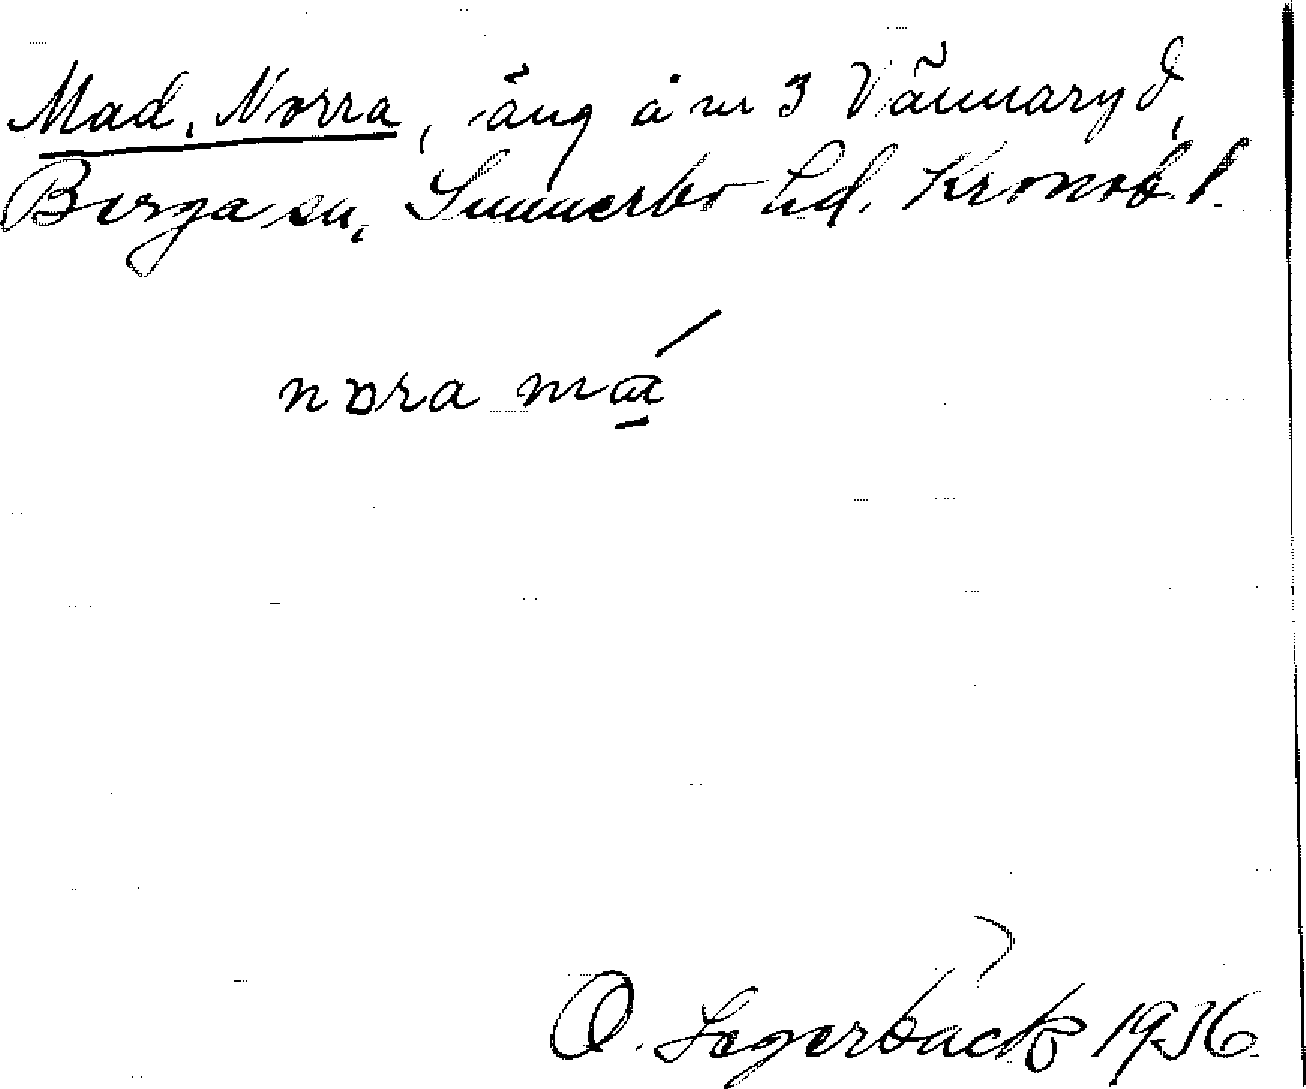 Mad, Norra, äng å nr 3 Vännaryd,
Berga sn, Sunnerbo hd. Kronob. l.
nɒra mɑ̲́
O. Segerbäck 1936